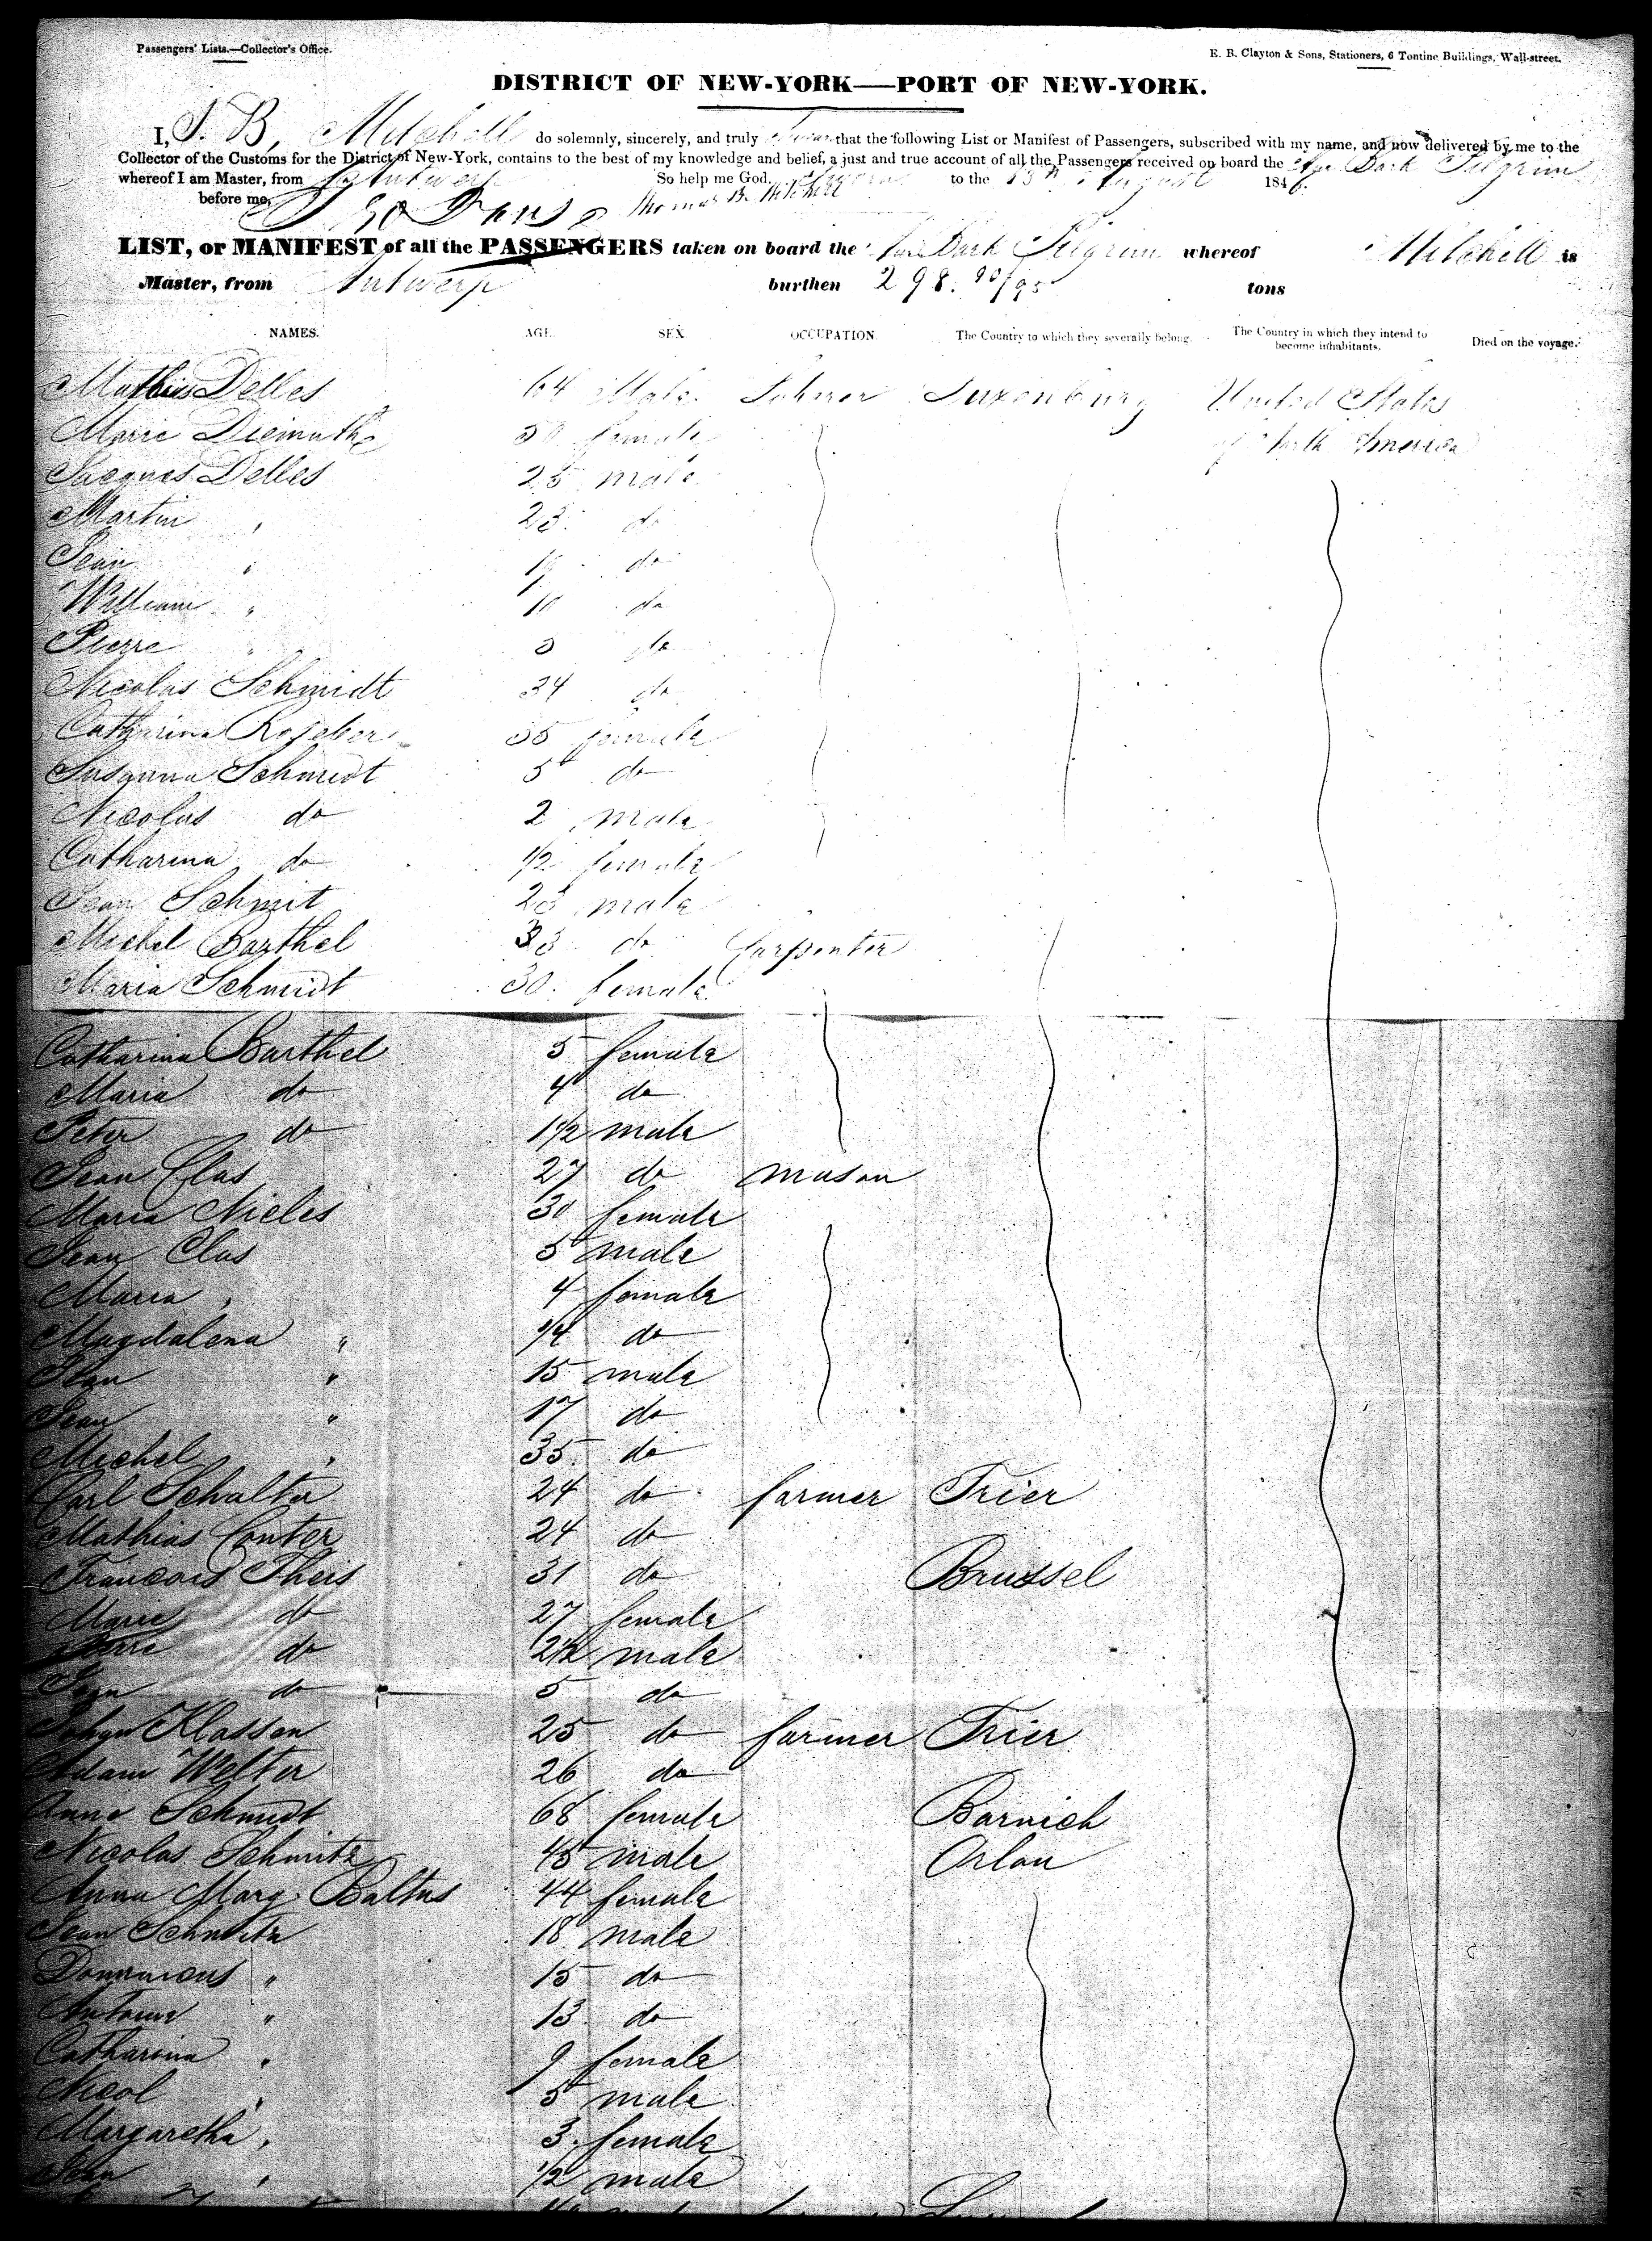 Passengers' Lists.—Collector's Office.
E. B. Clayton & Sons, Stationers, 6 Tontine Buildings, Wall-street.
DISTRICT OF NEW-YORK—PORT OF NEW-YORK.
I, T. B. Mitchell do solemnly, sincerely, and truly swear that the following List or Manifest of Passengers, subscribed with my name, and now delivered by me to the
Collector of the Customs for the District of New-York, contains to the best of my knowledge and belief, a just and true account of all the Passengers received on board the Bark Pilgrim
whereof I am Master, from Antwerp So help me God. Sworn to the 13th August 1846.
before me, Thomas B. Mitchell
LIST, or MANIFEST of all the PASSENGERS taken on board the Bark Pilgrim whereof Mitchell is
Master, from Antwerp burthen 298. 90/95 tons
NAMES. AGE. SEX. OCCUPATION. The Country to which they severally belong. The Country in which they intend to become inhabitants. Died on the voyage.
Mathias Delles 64 Male Luxenburg United States
Marie Diemuthe 50 female of North America
Jacques Delles 25 male
Martin " 23 do
Jean " do
William " 10 do
Pierre " do
Nicolas Schmidt 34 do
Catharina 35 female
Susanna Schmidt 5 do
Nicolas do 2 male
Catharina do 1/2 female
Jean Schmit 23 male
Michel Barthel 33 do Carpenter
Maria Schmidt 30 female
Catharina Barthel 5 female
Maria do 4 do
Peter do 1 1/2 male
Jean Clas 27 do mason
Maria Nieles 30 female
Jean Clas 5 male
Maria " 4 female
Magdalena " 1/4 do
Jean " 15 male
Jean " 17 do
Michel " 35 do
Carl Schalter 24 do farmer Trier
Mathias Conter 24 do
Francois Theis 31 do Brussel
Marie do 27 female
Pierre do 2 1/2 male
Jean do 5 do
Johan Klassen 25 do farmer Trier
Adam Welter 26 do
Anna Schmidt 68 female Barnich
Nicolas Schmitz 45 male Arlon
Anna Marg. Baltus 44 female
Jean Schmitz 18 male
Dominicus " 15 do
Antoine " 13 do
Catharina " 9 female
Nicol " 5 male
Margaretha " 3 female
Jean " 1/2 male